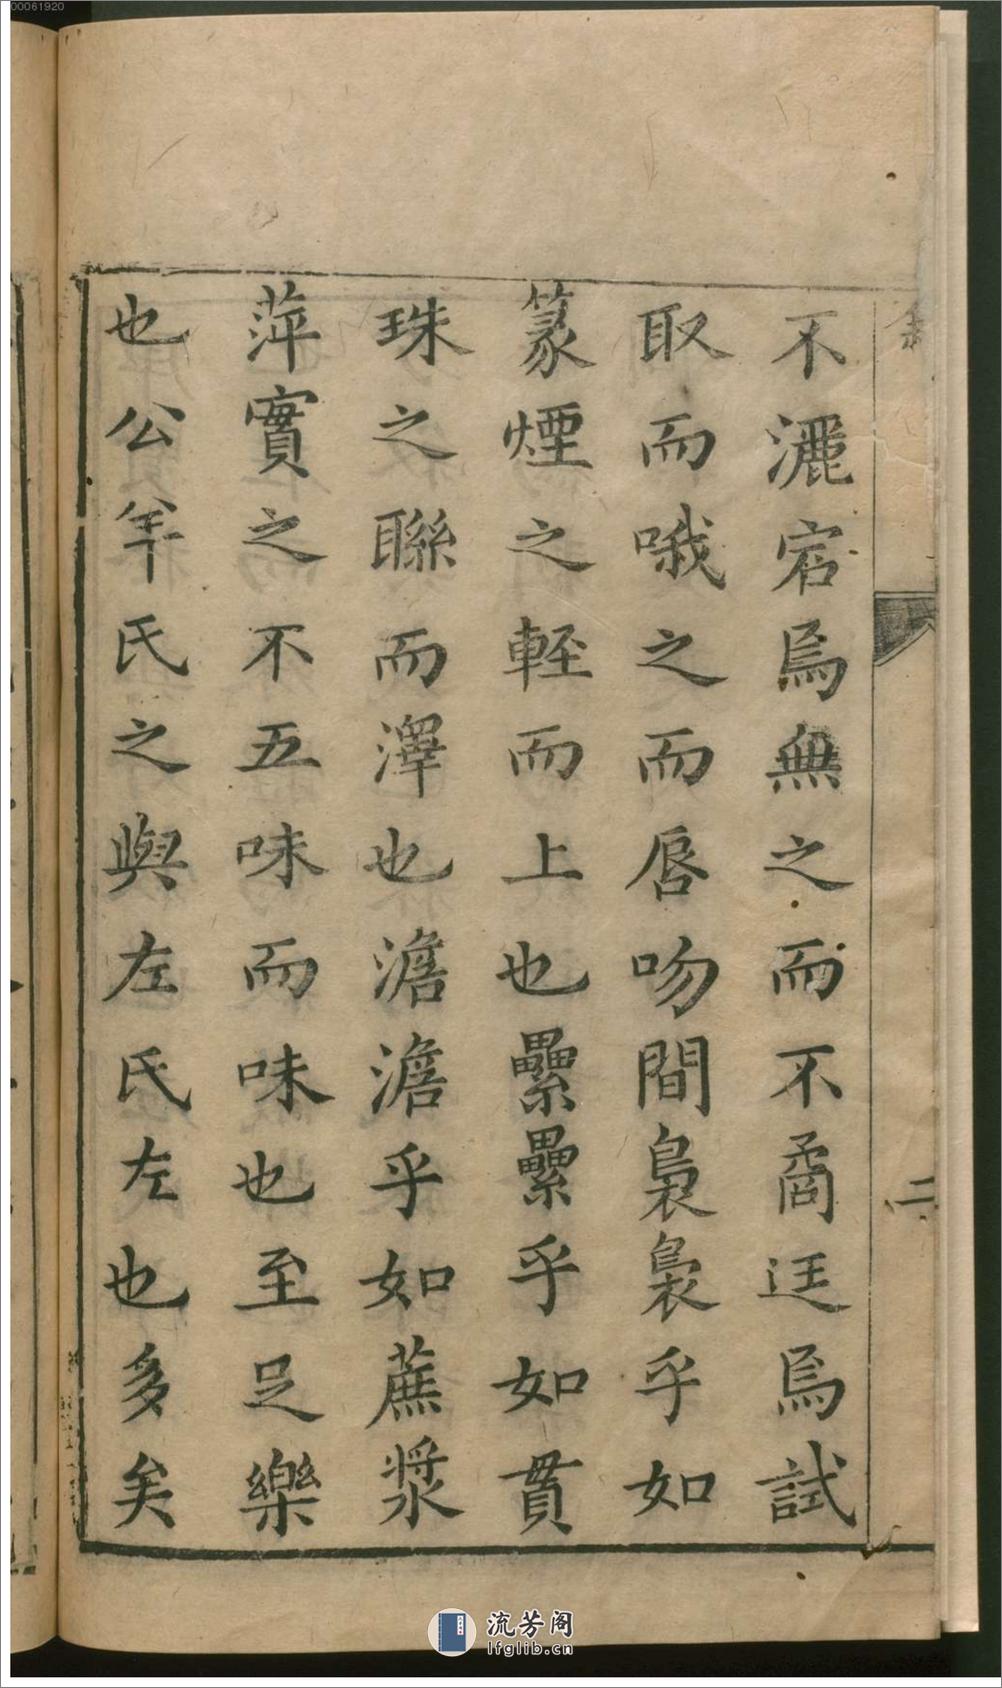 不灑宕焉無之而不矞迋焉試
取而哦之而唇吻間裊裊乎如
篆煙之輕而上也纍纍乎如貫
珠之聯而澤也澹澹乎如蔗漿
萍實之不五味而味也至足樂
也公羊氏之與左氏左也多矣
二
00061920
流芳阁
lfglib.cn